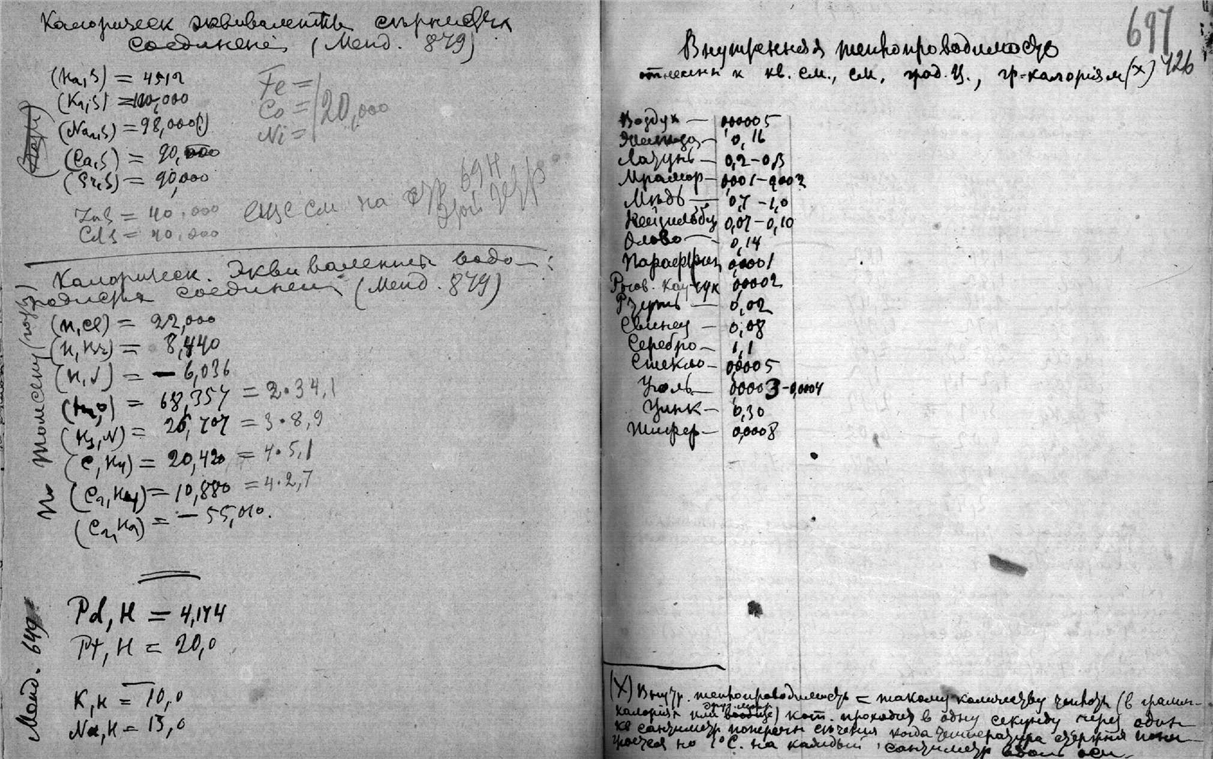 Калорическ эквиваленты сернистых
соединений (Менд. 879)
(H₂,S) = 4512
(K₂,S) = 110,000
(Na₂,S) = 98,000
(Ca,S) = 90,000
(Sr,S) = 90,000
ZnS = 40.000
CdS = 40.000
Fe =
Co = 20,000
Ni =
еще см на стр 694
Калорическ. Эквиваленты водо-
родистых соединений (Менд. 879)
По Томсену
(H,Cl) = 22,000
(H,Br) = 8,440
(H,J) = - 6,036
(H₂O) = 68,357 = 2·34,1
(H₃,N) = 26,707 = 3·8,9
(C,H₄) = 20,420 = 4·5,1
(C₂,H₄) = 10,880 = 4·2,7
(C₂,H₂) = - 55,010.
Менд. 649
Pd,H = 4,174
Pt,H = 20,0
K,H = 10,0
Na,H = 13,0
697
726
Внутренняя теплопроводимость
отнесенн к кв. см., см, град. Ц., гр-калориям (X)
Воздух — 0,00005
Железо — 0,16
Латунь — 0,2-0,3
Мрамор — 0,001-0,002
Мѣдь — 0,7-1,0
Нейзильбер 0,07-0,10
Олово — 0,14
Парафин 0,0001
Рогов. Каучук 0,0002
Ртуть — 0,02
Свинец — 0,08
Серебро — 1,1
Стекло — 0,0005
Уголь — 0,0003-0,0004
Цинк — 0,30
Шифер — 0,0008
(X) Внутр. теплопроводимость = такому количеству теплоты (в грамм-
калориях или вообще) кот. проходит в одну секунду через один
кв сантиметр поперечн сечения когда температура стержня пони-
жается на 1°C. на каждый сантиметр вдоль оси.